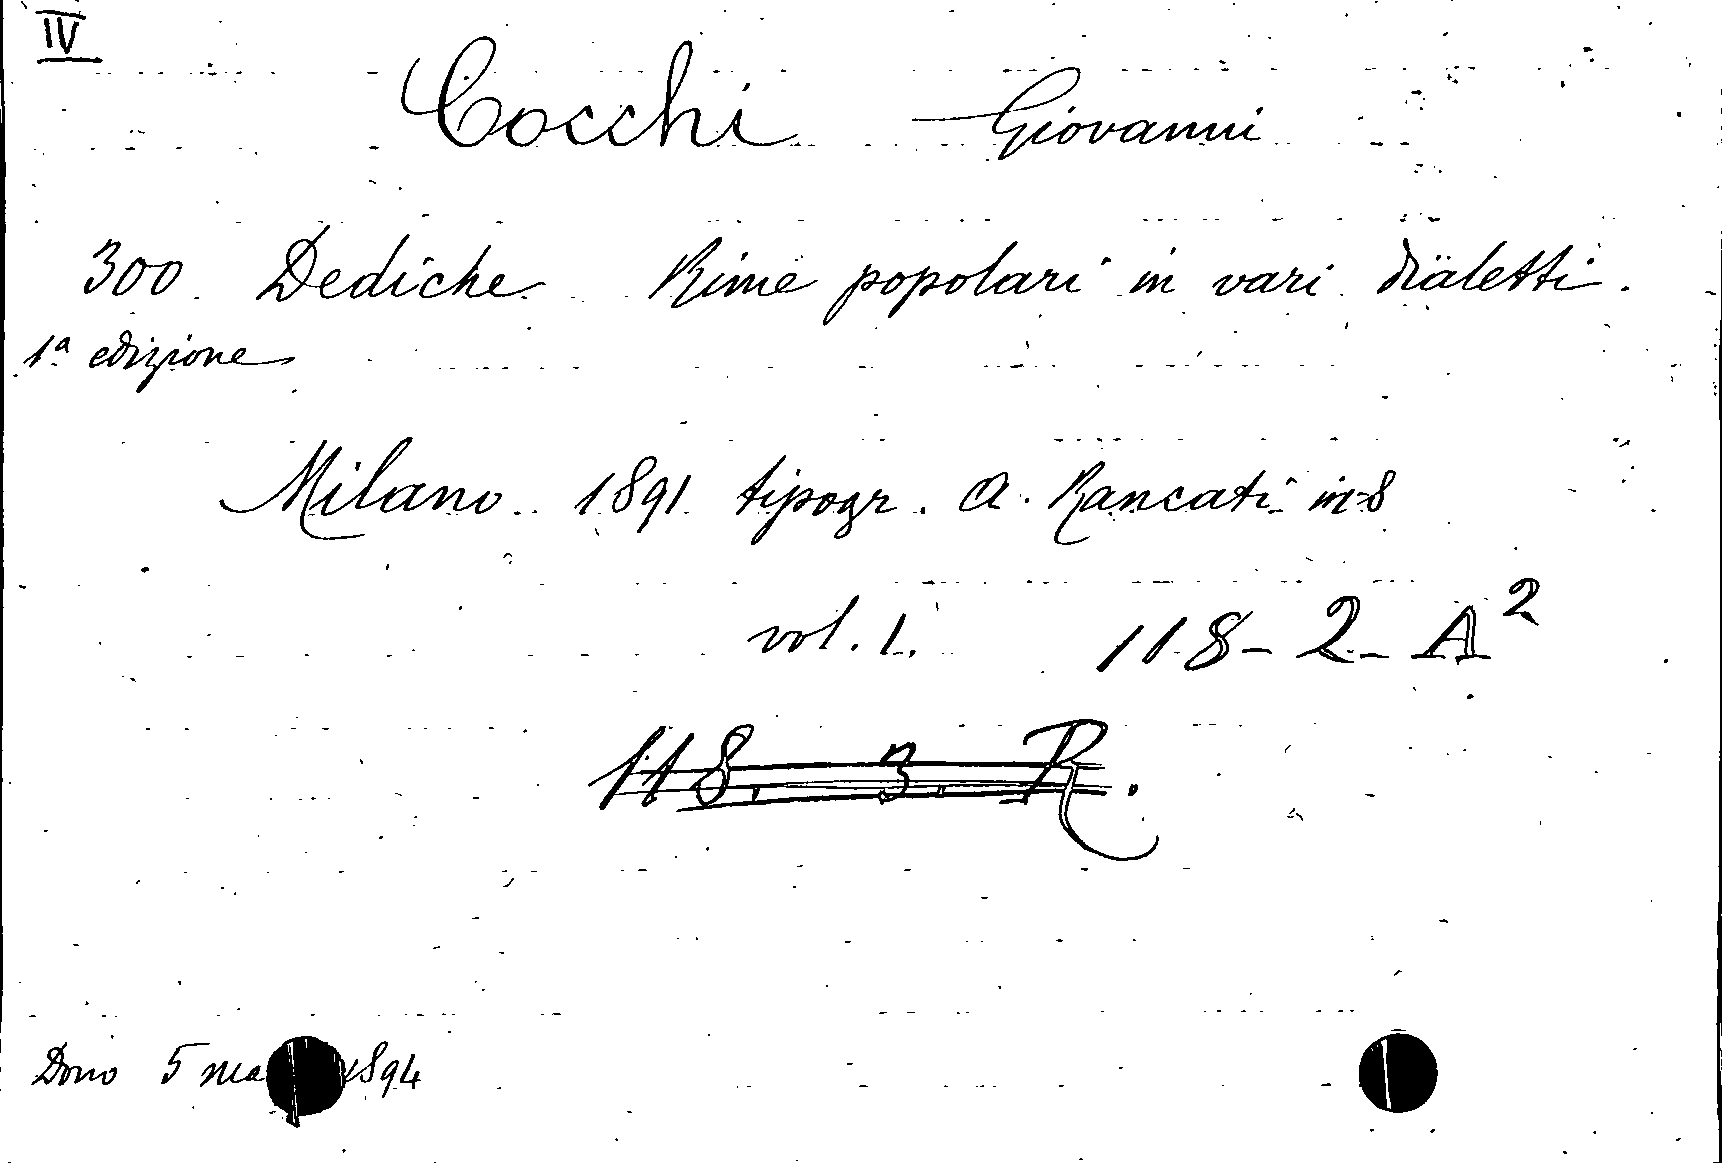 IV
Cocchi Giovanni
300 Dediche Rime popolari in vari dialetti.
1ª edizione
Milano 1891 tipogr. A. Rancati in-8
vol. 1. 118-2-A²
118. 3. R.
Dono 5 1894